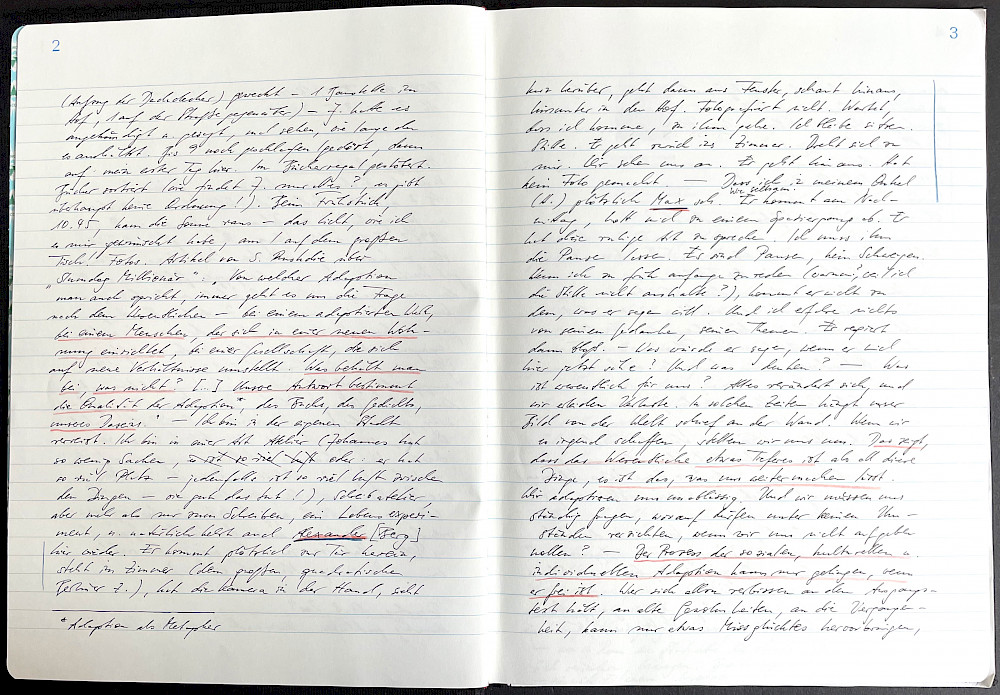 2
(Anfang der Dachdecker) geweckt – 1 Baustelle im
Hof, 1 auf der Straße gegenüber) – J. hatte es
angekündigt u. gesagt, mal sehen, wie lange du
es aushältst. Bis 9 noch geschlafen / gedöst, dann
auf, mein erster Tag hier. Im Bücherregal gestöbert
Bücher sortiert (wie findet J. nur alles?, es gibt
überhaupt keine Ordnung!). Beim Frühstück,
10.45, kam die Sonne raus – das Licht, wie ich
es mir gewünscht habe, am / auf dem großen
Tisch. Fotos. Artikel von S. Rushdie über
„Slumdog Millionär“: „Von welcher Adaption
man auch spricht, immer geht es um die Frage
nach dem Wesentlichen – bei einem adaptierten Werk,
bei einem Menschen, der sich in einer neuen Woh-
nung einrichtet, bei einer Gesellschaft, die sich
auf neue Verhältnisse umstellt. Was behält man
bei, was nicht? [...] Unsere Antwort bestimmt
die Qualität der Adaption*, des Buchs, des Gedichts,
unseres Daseins.“ – Ich bin in der eigenen Stadt
verreist. Ich bin in einer Art Atelier (Johannes hat
so wenig Sachen, es ist so viel Luft oder: er hat
so viel Platz – jedenfalls ist so viel Luft zwischen
den Dingen – wie gut das tut!), Schreibatelier,
aber mehr als nur zum Schreiben, ein Lebensexperi-
ment, u. natürlich kehrt auch Alexander [Berg]
hier wieder. Er kommt plötzlich zur Tür herein,
steht im Zimmer (dem großen, quadratischen
Berliner Z.), hat die Kamera in der Hand, sieht
* Adaption als Metapher
3
kurz herüber, geht dann ans Fenster, schaut hinaus,
hinunter in den Hof. Fotografiert nicht. Wartet,
dass ich komme, zu ihm gehe. Ich bleibe sitzen.
Stille. Er geht zurück ins Zimmer. Dreht sich zu
mir. Wir sehen uns an. Er geht hinaus. Hat
kein Foto gemacht — Dass ich in meinem Onkel
wir schweigen
(A.) plötzlich Max seh. Er kommt am Nach-
mittag, holt mich zu einem Spaziergang ab. Er
hat diese ruhige Art zu sprechen. Ich muss ihm
die Pausen lassen. Es sind Pausen, kein Schweigen.
Wenn ich zu früh anfange zu reden (warum, weil ich
die Stille nicht aushalte?), kommt er nicht zu
dem, was er sagen will. Und ich erfahre nichts
von seinen Gedanken, seinen Themen. Er reagiert
dann bloß. – Was würde er sagen, wenn er mich
hier jetzt sähe! Und was denken? – Was
ist wesentlich für uns? Alles verändert sich, und
wir erleiden Verluste. In solchen Zeiten hängt unser
Bild von der Welt schief an der Wand. Wenn wir
es irgend schaffen, stellen wir uns um. Das zeigt,
dass das Wesentliche etwas Tieferes ist als all diese
Dinge, es ist das, was uns weitermachen lässt.
Wir adaptieren uns unablässig. Und wir müssen uns
ständig fragen, worauf dürfen unter keinen Um-
ständen verzichten, wenn wir uns nicht aufgeben
wollen? – Der Prozess der sozialen, kulturellen u.
individuellen Adaption kann nur gelingen, wenn
er frei ist. Wer sich allzu verbissen an den Ausgangs-
text hält, an alte Gewohnheiten, an die Vergangen-
heit, kann nur etwas Missglücktes hervorbringen,